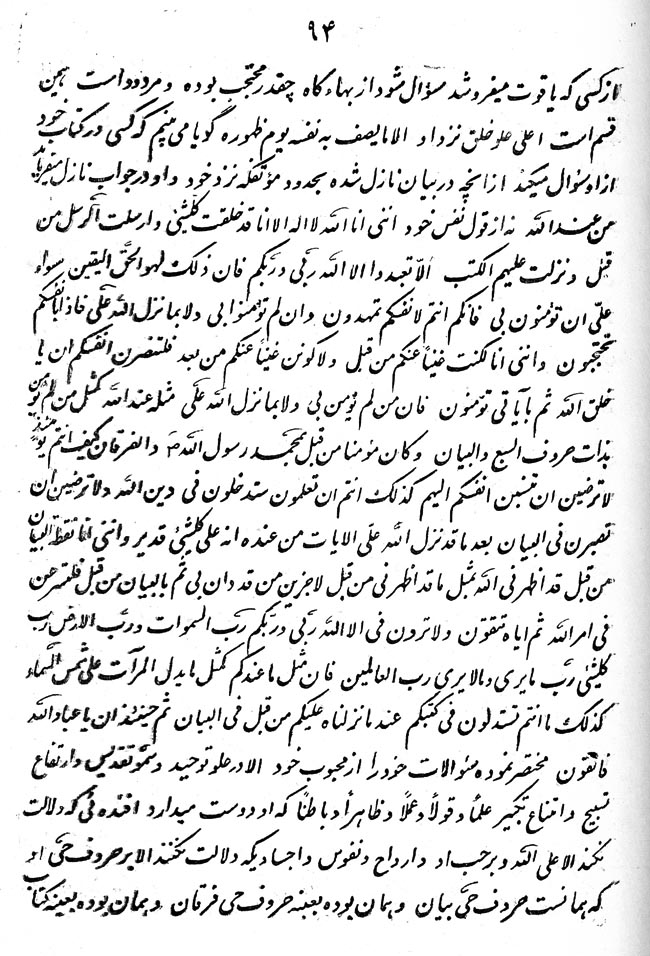 ۹۴
از کسی که یاقوت میفروشد سؤال شود از بهاء کاه چقدر محتجب بوده و مردود است همین
قسم است اعلی علو خلق نزد او الا ما یصف به نفسه یوم ظهوره گویا می بینم که کسی در کتاب خود
از او سؤال میکند از آنچه در بیان نازل شده بحدود مؤتفکه نزد خود و او در جواب نازل میفرماید
من عند الله نه از قول نفس خود اننی انا الله لا اله الا انا قد خلقت کلشیئ و ارسلت الرسل من
قبل و نزلت علیهم الکتب الّا تعبدوا الا الله ربی و ربکم فان ذلک لهو الحق الیقین سواء
علیّ ان تؤمنون بی فانکم انتم لانفسکم تمهدون و ان لم تؤمنوا بی ولا بما نزل الله علی فاذا بانفسکم
تحتجبون و اننی انا لکنت غنیاً عنکم من قبل ولاکونن غنیاً عنکم من بعد فلتنصرن انفسکم ان یا
خلق الله ثم بآیاتی تؤمنون فان من لم یؤمن بی ولا بما نزل الله علی مثله عند الله کمثل من لم یؤمن
بذات حروف السبع والبیان و کان مؤمنا من قبل بمحمد رسول الله ص والفرقان کیف انتم یومئذ
لا ترضین ان تنسبن انفسکم الیهم کذلک انتم ان تعلمون ستدخلون فی دین الله ولا ترضین ان
تصبرن فی البیان بعد ما قد نزل الله علی الایات من عنده انه علی کلشیئ قدیر و اننی انا نقطة البیان
من قبل قد اظهرنی الله بمثل ما قد اظهرنی من قبل لاجزین من قد دان بی ثم بالبیان من قبل فلتسرعن
فی امر الله ثم ایاه تتقون ولا ترون فی الا الله ربی و ربکم رب السموات و رب الارض رب
کلشیئ رب ما یری و ما لا یری رب العالمین فان مثل ما عندکم کمثل ما یدل المرآت علی شمس السماء
کذلک ما انتم تستدلون فی کتبکم عند ما نزلناه علیکم من قبل فی البیان ثم حینئذ ان یا عباد الله
فاتقون مختصر نموده سئوالات خود را از محبوب خود الا در علو توحید و سمو تقدیس و ارتفاع
تسبیح و امتناع تکبیر علماً و قولاً و عملاً و ظاهراً و باطناً که او دوست میدارد افئده ئی که دلالت
نکند الا علی الله و بر حب او و ارواح و نفوس و اجسادیکه دلالت نکنند الا بر حروف حی او
که همانست حروف حی بیان و همان بوده بعینه حروف حی فرقان و همان بوده بعینه کتاب